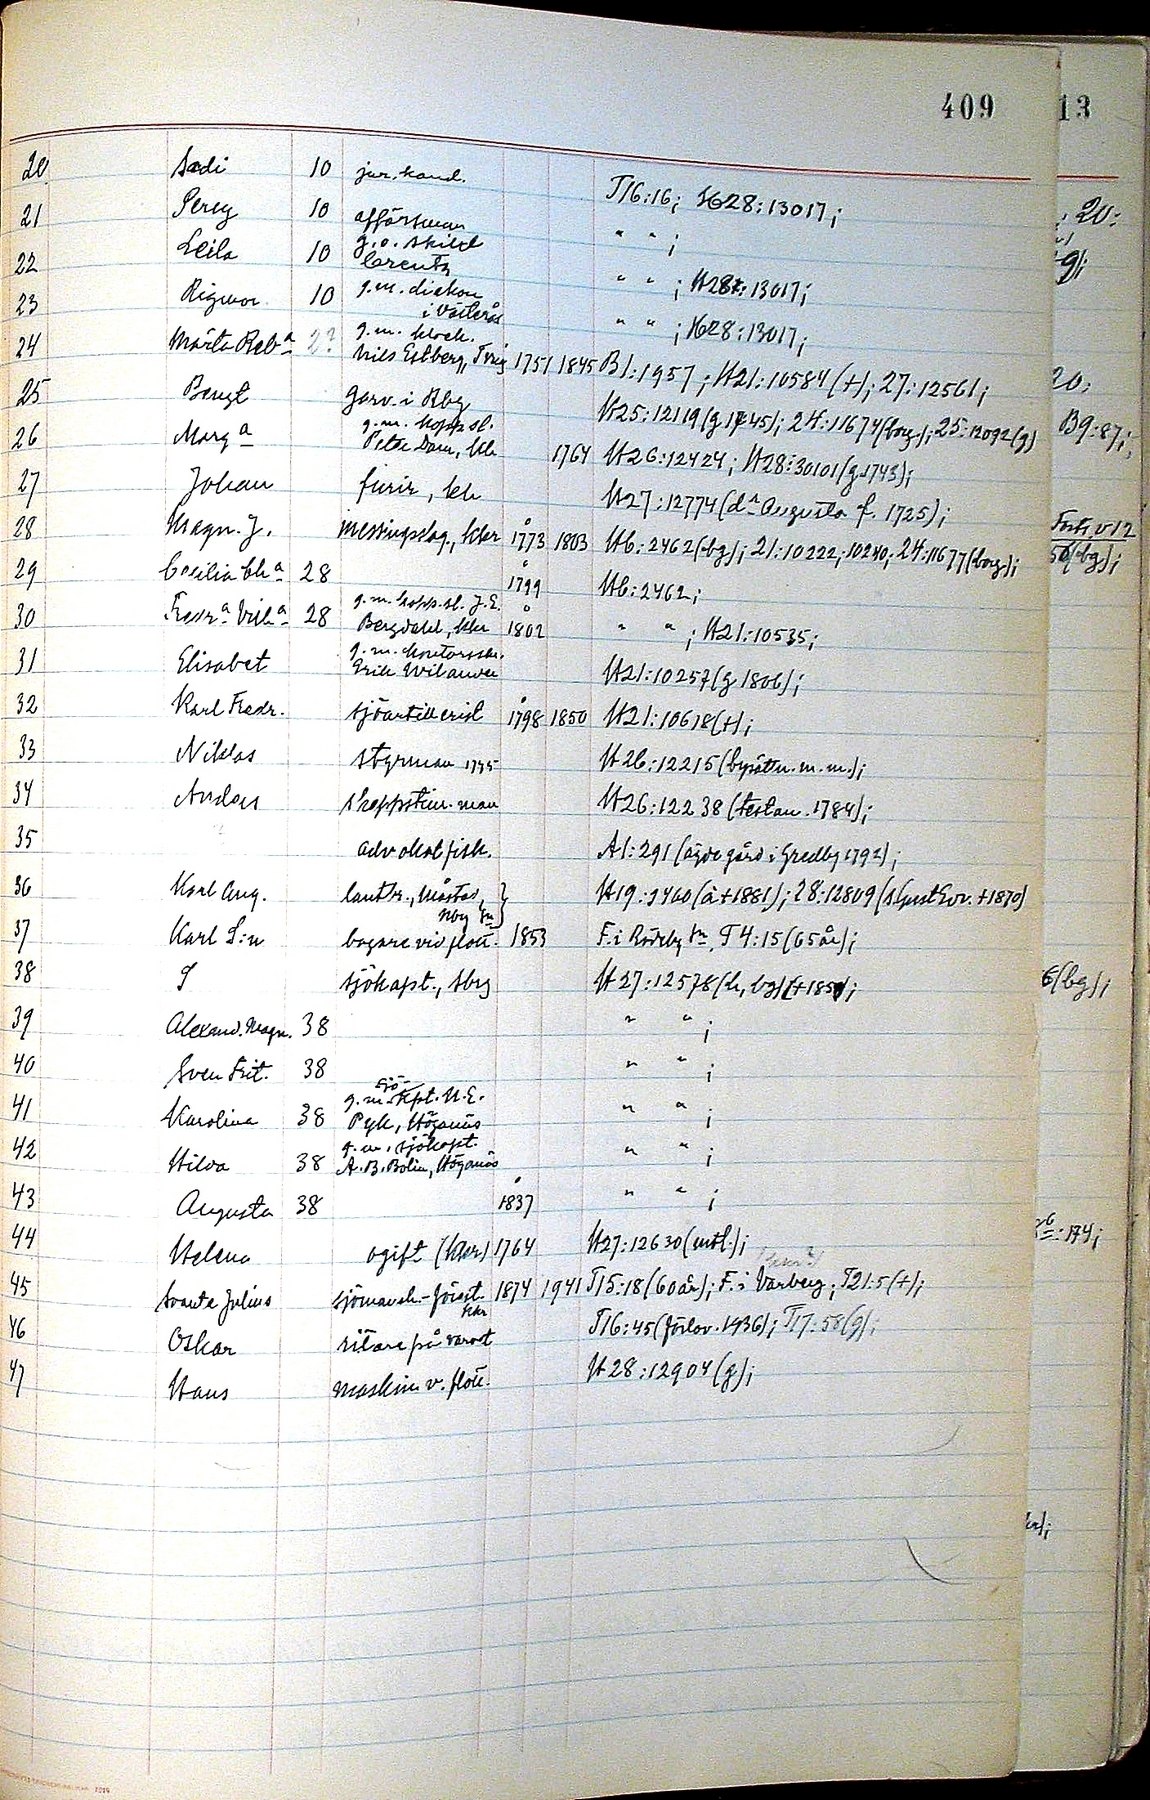 409
13
20 Sadi 10 jur. kand. T16:16; H28:13017;
21 Percy 10 affärsman " " ;
22 Leila 10 g.o. skild Creutz " " ; H28:13017;
23 Rigmor 10 g.m. diakon i Västerås " " ; H28:13017;
24 Märta Reb:a 2? g.m. klock. Nils Estberg, Tving 1751 1845 B1:1957; H21:10584 (+); 27:12561;
25 Bengt garv. i Rbg H25:12119 (g 1745); 24:11674 (borg.); 25:12092 (g)
26 Marg:a g.m. kopp.sl. Peter Dam, kh 1764 H26:12424; H28:30101 (g 1743);
27 Johan furir, kh H27:12774 (d:a Augusta f. 1725);
28 Magn. J. messingslag., khr 1773 1803 H6:2462 (bg); 21:10222; 10240; 24:11677 (borg.);
29 Cecilia Ch:a 28 1799 H6:2462;
30 Fredr:a Vilh:a 28 g.m. kopp.sl. J.E. Bergdahl, khr 1802 " " ; H21:10535;
31 Elisabet g.m. kontorsskr. Erik Wilander H21:10257 (g 1806);
32 Karl Fredr. sjöartillerist 1798 1850 H21:10618 (+);
33 Niklas styrman 1795 H26:12215 (bysättn. m.m.);
34 Anders skeppstim.man H26:12238 (testam. 1784);
35 advokatfisk. A1:291 (ägde gård i Gredby 1792);
36 Karl Aug. lantbr., Måstad, Nbg sn } H19:9460 (å +1881); 28:12809 (s Gust Edv. +1870)
37 Karl S:n bagare vid flott. 1853 F. i Rödeby sn T4:15 (65 år);
38 S sjökapt., Sbrg H27:12578 (h, bg) (+1851);
39 Alexand. Magn. 38 " " ;
40 Sven Frit. 38 " " ;
41 Karolina 38 g.m. sjökapt. N.E. Pyk, Höganäs " " ;
42 Hilda 38 g.m. sjökapt. A.B. Bolin, Höganäs " " ;
43 Augusta 38 1837 " " ;
44 Helena ogift (khr) 1764 H27:12630 (intl.);
45 Svante Julius sjömansh.-förest. khr 1874 1941 T15:18 (60 år); F. i Varberg; T21:5 (+);
46 Oskar ritare på varvet T16:45 (förlov. 1936); T17:58 (g);
47 Hans maskin. v. flott. H28:12904 (g);
20:
B9:87;
(bg);
6 (bg);
:174;